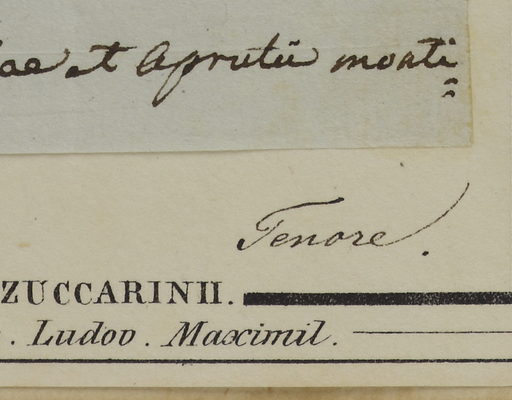 ae et Aprutii monti
Tenore.
ZUCCARINII.
. Ludov. Maximil.